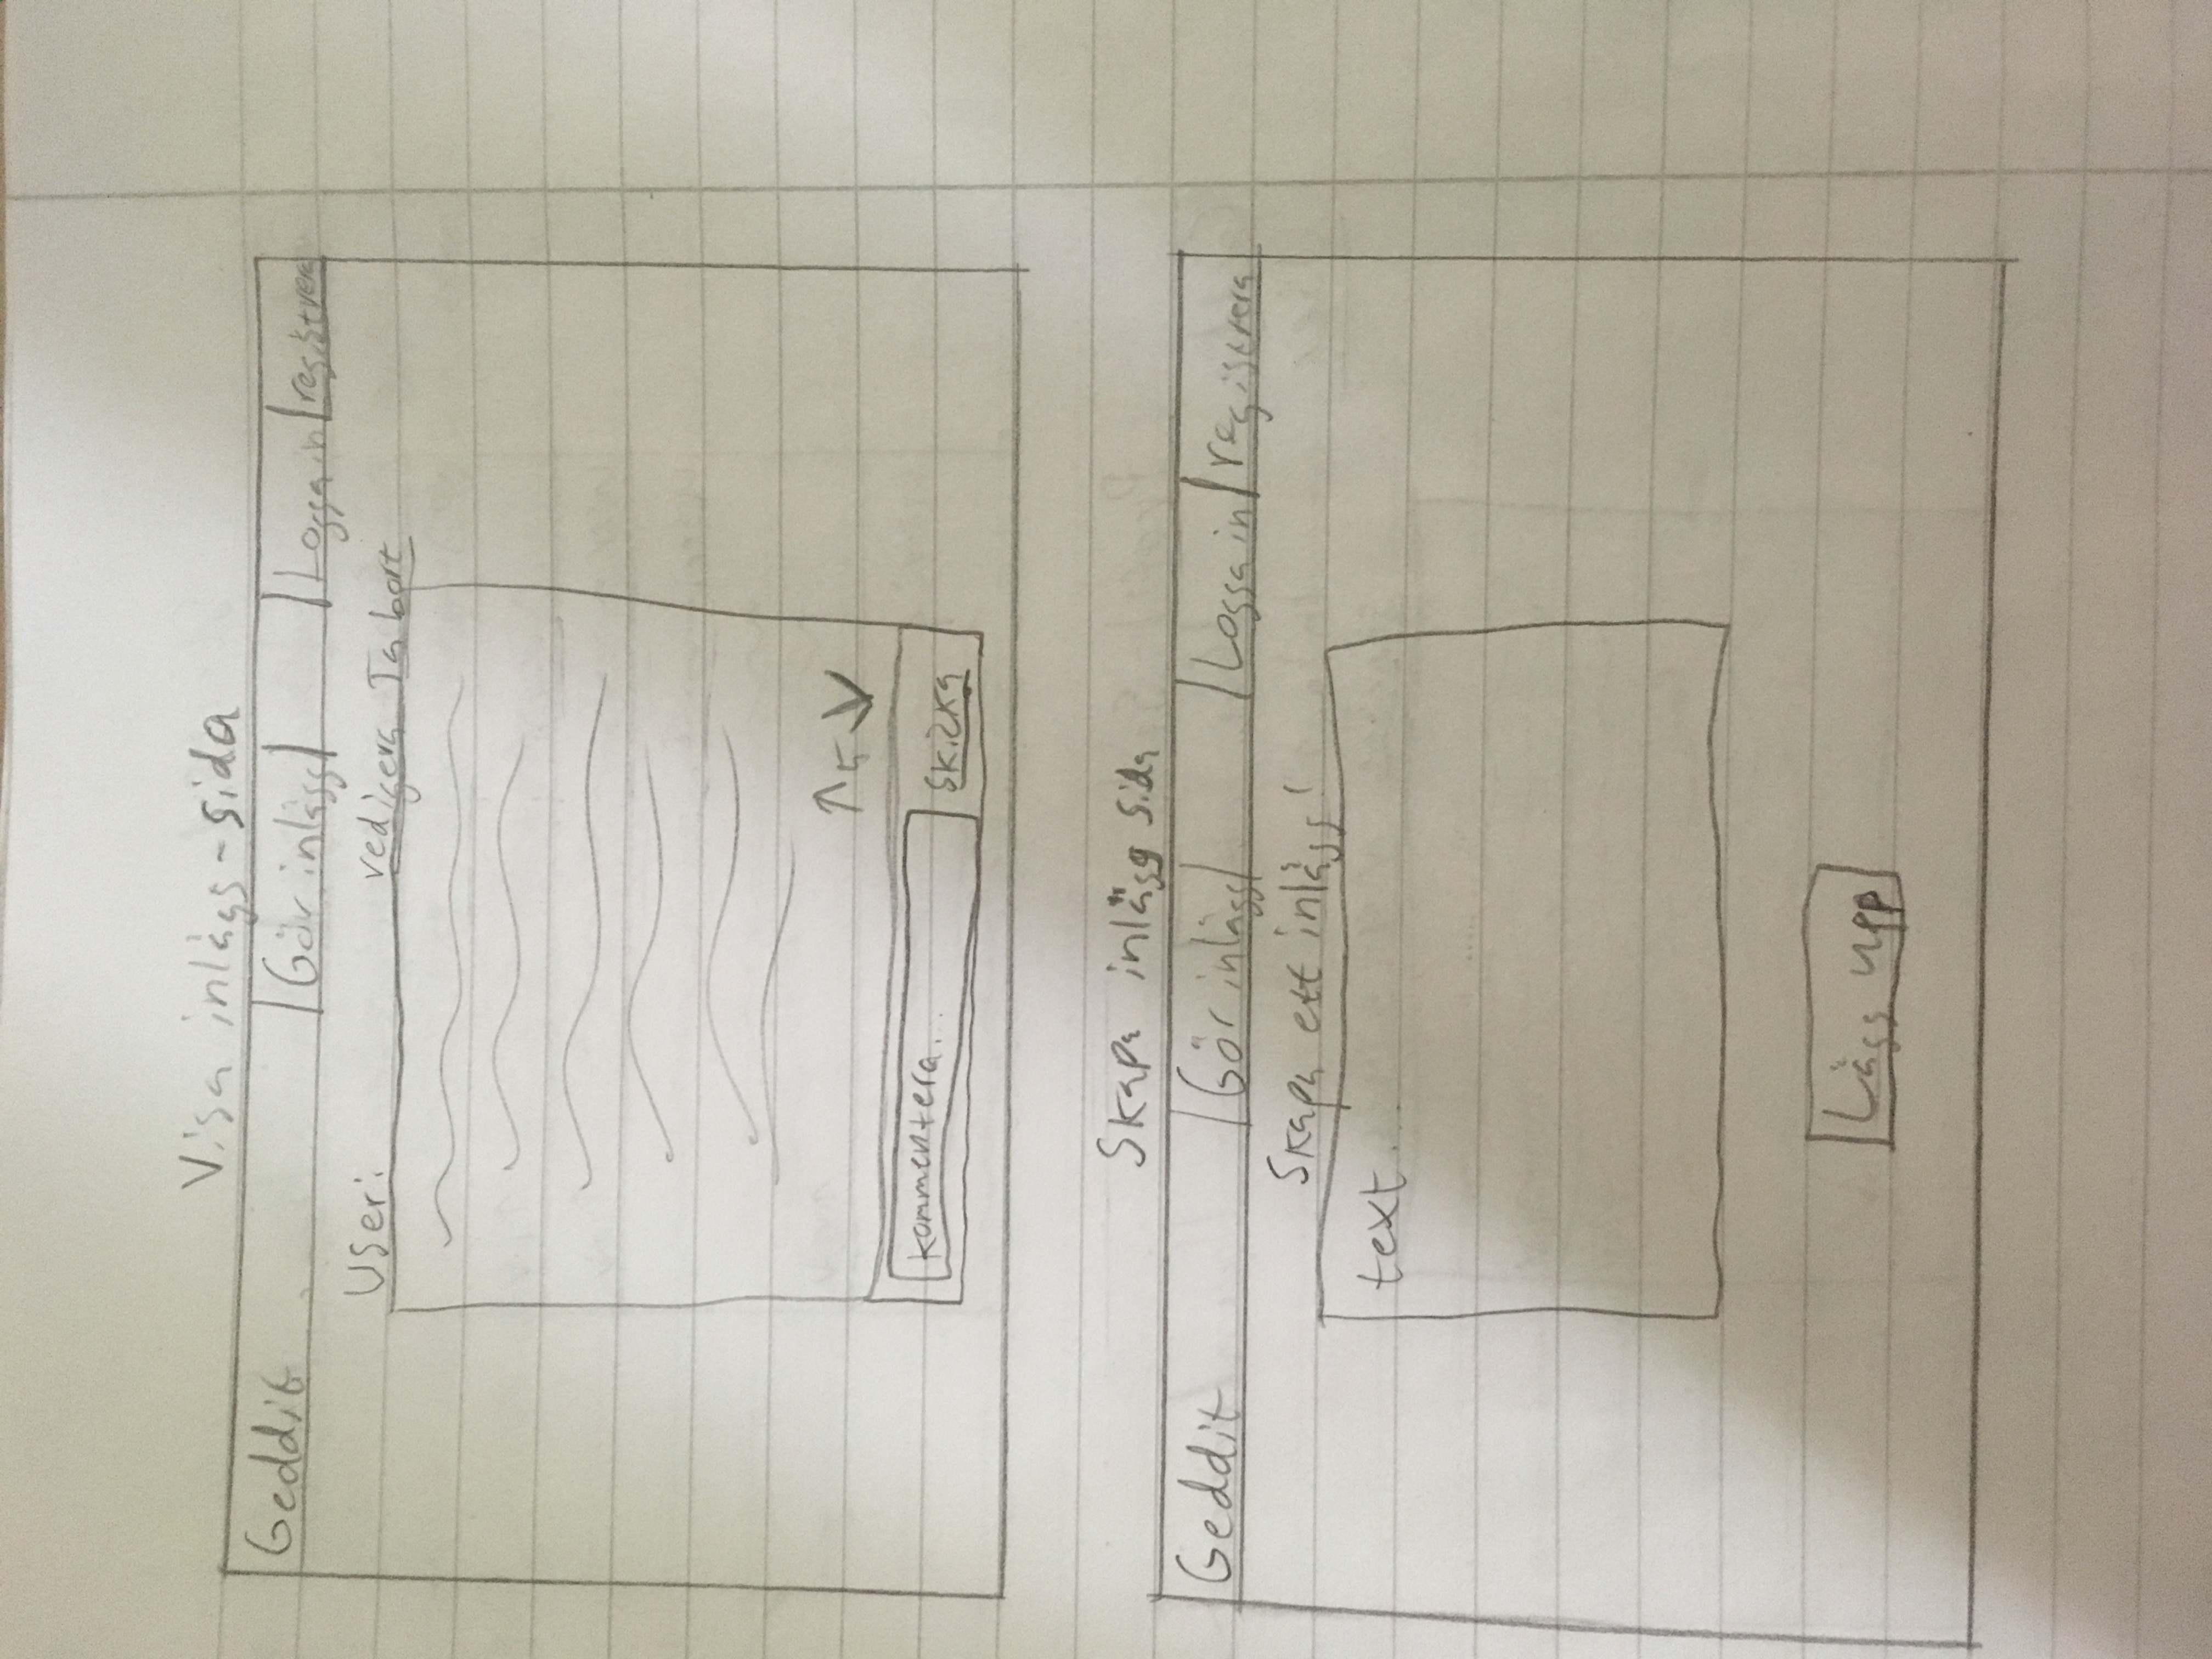 Visa inlägs-sida
Geddit Gör inlägg Logga in registrera
User: redigera Ta bort
↑ 5 ↓
kommentera... Skicka
Skapa inlägg sida
Geddit Gör inlägg Logga in registrera
Skapa ett inlägg!
text...
Lägg upp